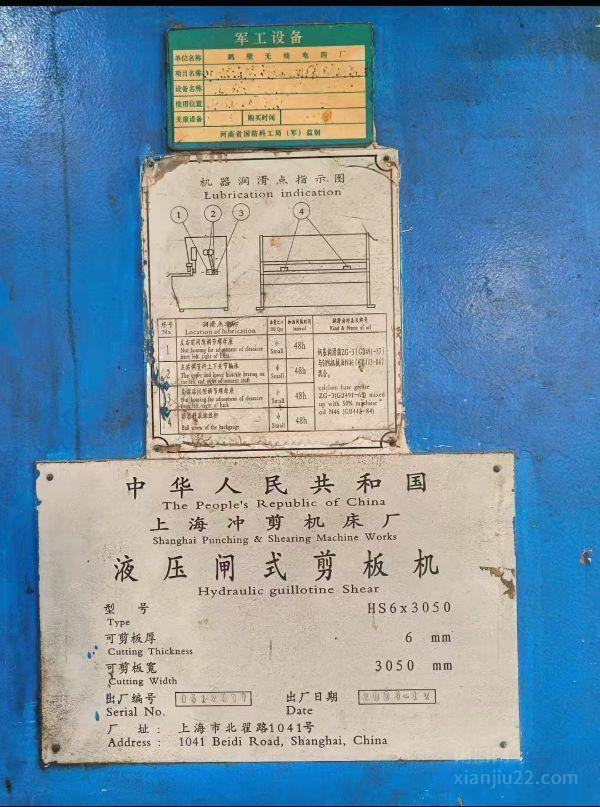 军工设备
单位名称 鹤壁无线电四厂
项目名称
设备名称
使用位置
美质设备 购买时间
河南省国防科工局(军)监制
机器润滑点指示图
Lubrication indication
1 2 3 4
序号 润滑点名称
No Location of lubrication
1 左右前间隙调节螺母座 少 48h
Nut housing for adjustment of clearance Small
front left, right of front
2 48h
The upper and lower knuckle bearing on Small
the left and right of adjustment shaft
3 48h
Nut housing for adjustment of clearance Small
4 48h
Ball screw of the backgauge Small
钙基润滑脂ZG-3(GB491-87)
与50%机械油N46(GB443-84)
混合。
calcium base grease
ZG-3(GB491-65) mixed
up with 50% machine
oil N46 (GB443-84)
中华人民共和国
The People's Republic of China
上海冲剪机床厂
Shanghai Punching & Shearing Machine Works
液压闸式剪板机
Hydraulic guillotine Shear
型号 HS6x3050
Type
可剪板厚 6 mm
Cutting Thickness
可剪板宽 3050 mm
Cutting Width
出厂编号 出厂日期
Serial No. Date
厂址: 上海市北翟路1041号
Address: 1041 Beidi Road, Shanghai, China
xianjiu22.com